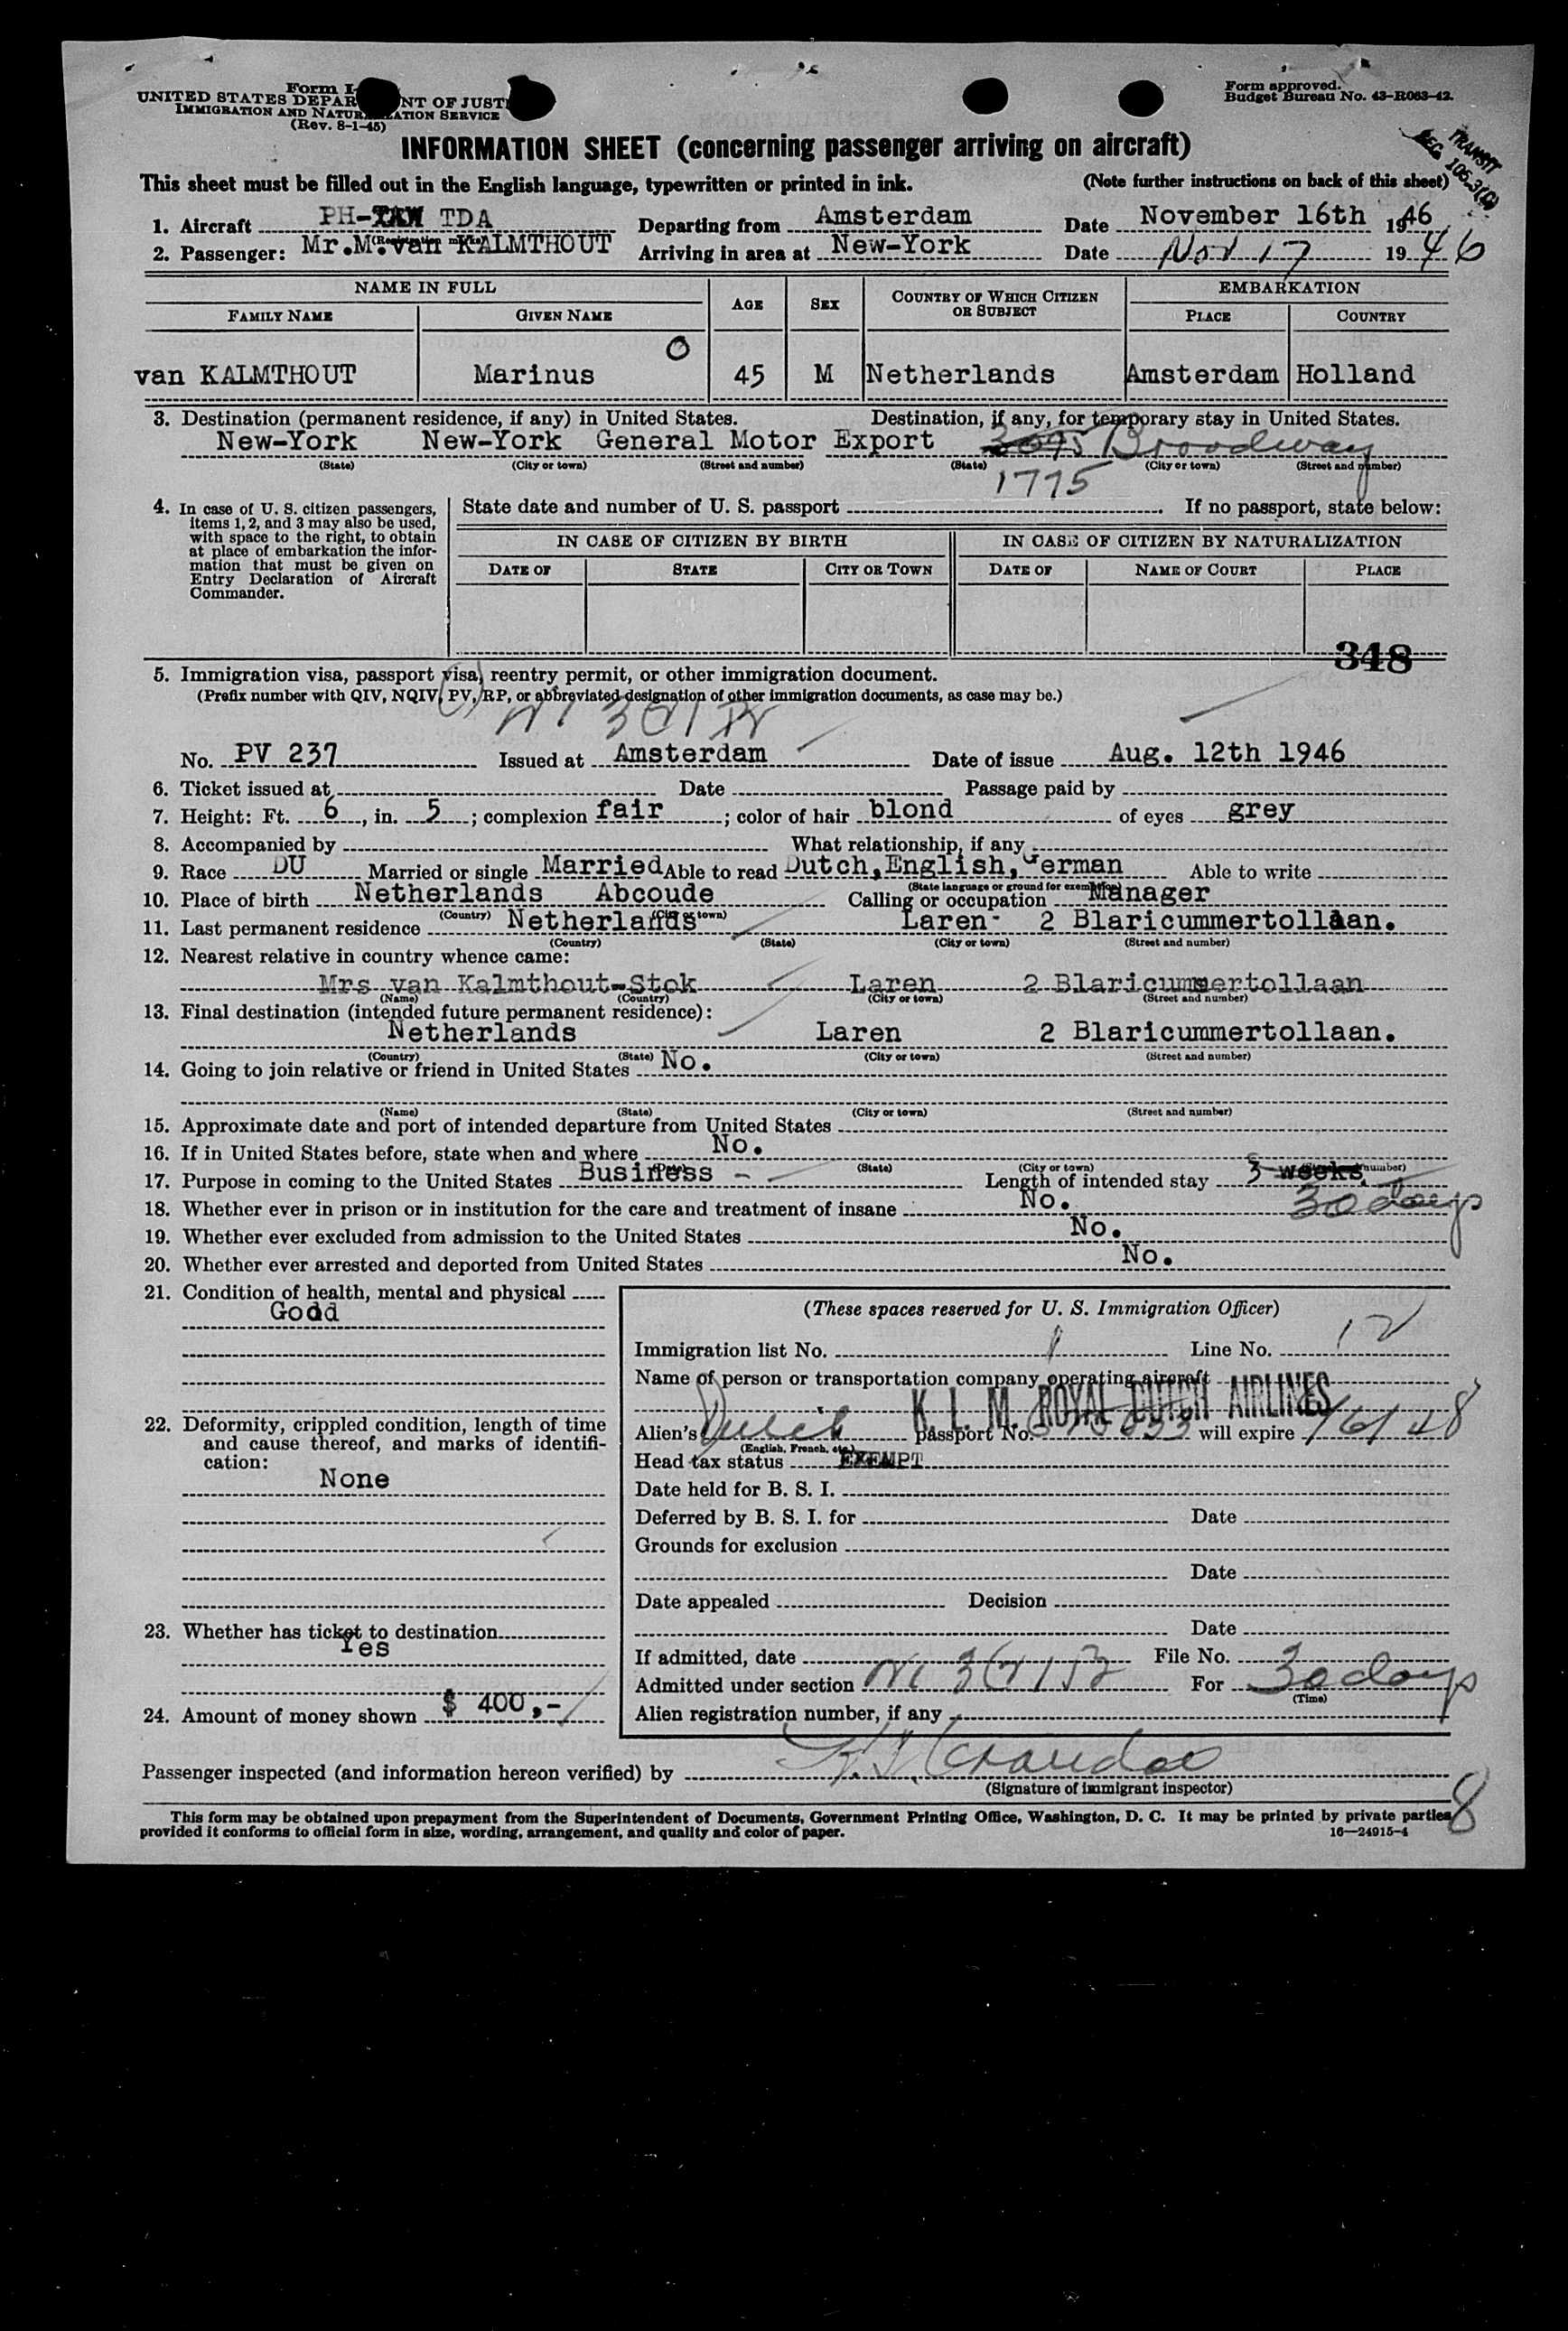 Form I-
UNITED STATES DEPAR NT OF JUST
IMMIGRATION AND NATUR ATION SERVICE
(Rev. 8-1-45)
Form approved.
Budget Bureau No. 43-R063-42.
TRANSIT
SEC. 106.3(G)
INFORMATION SHEET (concerning passenger arriving on aircraft)
This sheet must be filled out in the English language, typewritten or printed in ink. (Note further instructions on back of this sheet)
1. Aircraft PH- TDA Departing from Amsterdam Date November 16th 1946
(Registration marks)
2. Passenger: Mr.M.van KALMTHOUT Arriving in area at New-York Date Nov 17 1946
NAME IN FULL AGE SEX COUNTRY OF WHICH CITIZEN OR SUBJECT EMBARKATION
FAMILY NAME GIVEN NAME PLACE COUNTRY
O
van KALMTHOUT Marinus 45 M Netherlands Amsterdam Holland
3. Destination (permanent residence, if any) in United States. Destination, if any, for temporary stay in United States.
New-York New-York General Motor Export Broadway
(State) (City or town) (Street and number) (State) (City or town) (Street and number)
1775
4. In case of U. S. citizen passengers, items 1, 2, and 3 may also be used, with space to the right, to obtain at place of embarkation the information that must be given on Entry Declaration of Aircraft Commander.
State date and number of U. S. passport . If no passport, state below:
IN CASE OF CITIZEN BY BIRTH IN CASE OF CITIZEN BY NATURALIZATION
DATE OF STATE CITY OR TOWN DATE OF NAME OF COURT PLACE
348
5. Immigration visa, passport visa, reentry permit, or other immigration document.
(Prefix number with QIV, NQIV, PV, RP, or abbreviated designation of other immigration documents, as case may be.)
No. PV 237 Issued at Amsterdam Date of issue Aug. 12th 1946
6. Ticket issued at Date Passage paid by
7. Height: Ft. 6, in. 5; complexion fair; color of hair blond of eyes grey
8. Accompanied by What relationship, if any
9. Race DU Married or single Married Able to read Dutch, English, German Able to write
(State language or ground for exemption)
10. Place of birth Netherlands Abcoude Calling or occupation Manager
(Country) (City or town)
11. Last permanent residence Netherlands Laren- 2 Blaricummertollaan.
(Country) (State) (City or town) (Street and number)
12. Nearest relative in country whence came:
Mrs van Kalmthout-Stok Laren 2 Blaricummertollaan
(Name) (Country) (City or town) (Street and number)
13. Final destination (intended future permanent residence):
Netherlands Laren 2 Blaricummertollaan.
(Country) (State) (City or town) (Street and number)
14. Going to join relative or friend in United States No.
(Name) (State) (City or town) (Street and number)
15. Approximate date and port of intended departure from United States
16. If in United States before, state when and where No.
(Date) (State) (City or town) (Street and number)
17. Purpose in coming to the United States Business - Length of intended stay 3 weeks
30 days
18. Whether ever in prison or in institution for the care and treatment of insane No.
19. Whether ever excluded from admission to the United States No.
20. Whether ever arrested and deported from United States No.
21. Condition of health, mental and physical
Good
22. Deformity, crippled condition, length of time and cause thereof, and marks of identification:
None
23. Whether has ticket to destination
Yes
24. Amount of money shown $ 400,-
(These spaces reserved for U. S. Immigration Officer)
Immigration list No. 1 Line No. 12
Name of person or transportation company operating aircraft
K. L. M. ROYAL DUTCH AIRLINES
Alien's Dutch passport No. will expire 1/6/48
(English, French, etc.)
Head tax status EXEMPT
Date held for B. S. I.
Deferred by B. S. I. for Date
Grounds for exclusion
Date
Date appealed Decision
Date
If admitted, date File No.
Admitted under section For 30 days
(Time)
Alien registration number, if any
Passenger inspected (and information hereon verified) by
(Signature of immigrant inspector)
This form may be obtained upon prepayment from the Superintendent of Documents, Government Printing Office, Washington, D. C. It may be printed by private parties
provided it conforms to official form in size, wording, arrangement, and quality and color of paper. 16—24915-4
8